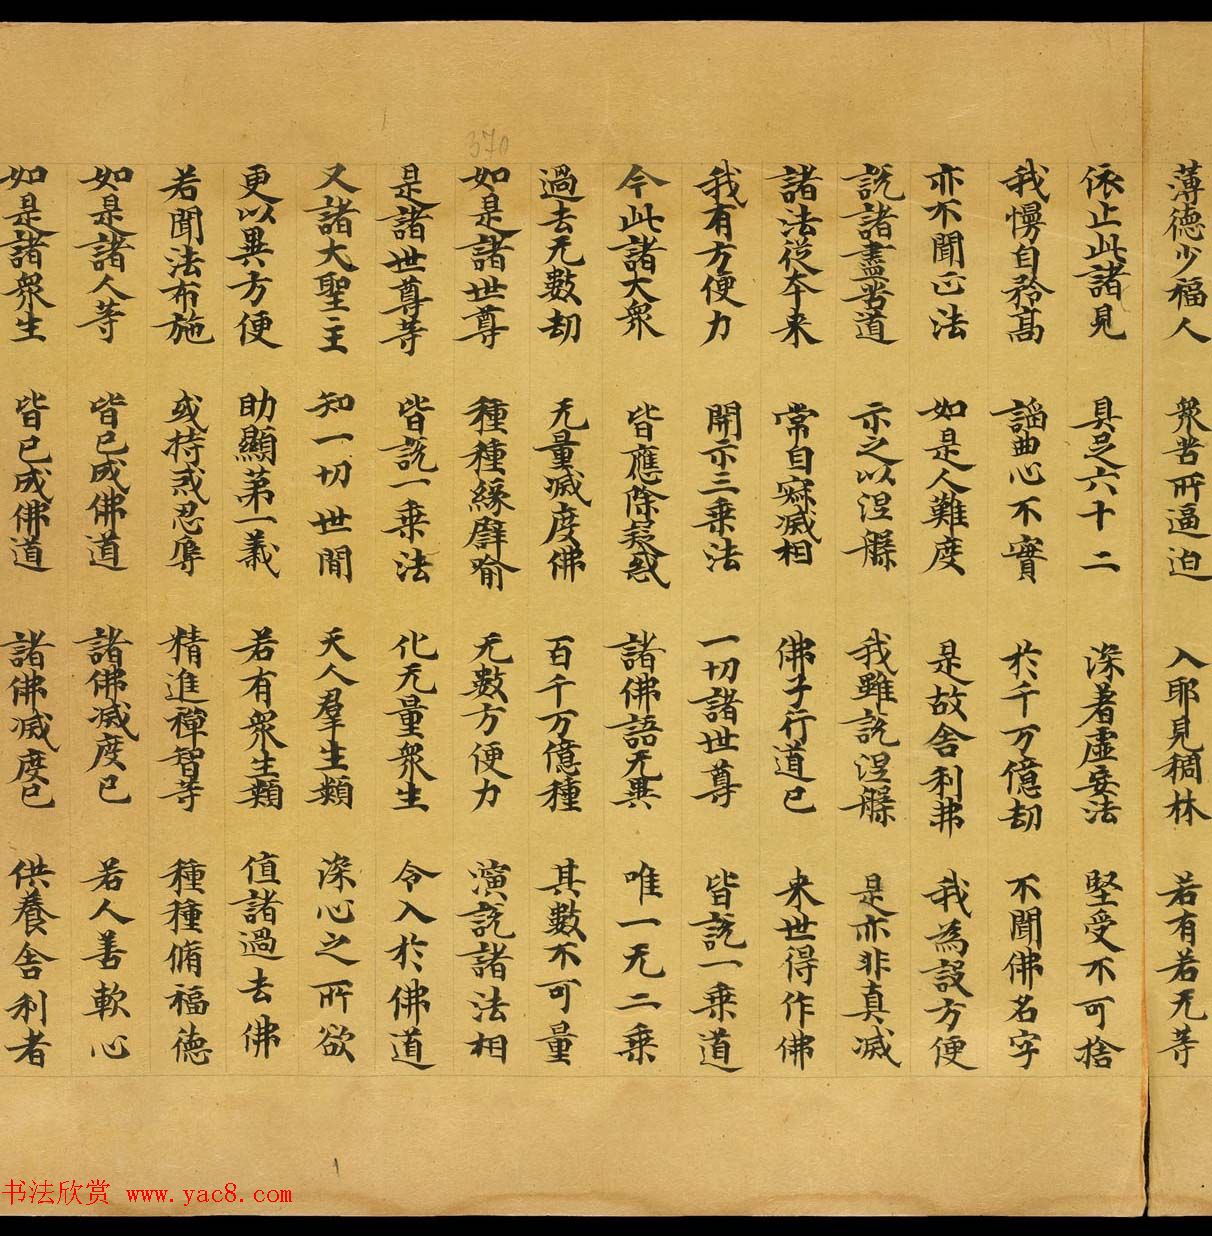 薄德少福人 衆苦所逼迫 入耶見稠林 若有若无等
依止此諸見 具足六十二 深著虛妄法 堅受不可捨
我慢自矜高 謟曲心不實 於千万億劫 不聞佛名字
亦不聞正法 如是人難度 是故舍利弗 我為設方便
說諸盡苦道 示之以涅槃 我雖說涅槃 是亦非真滅
諸法從本来 常自寂滅相 佛子行道已 来世得作佛
我有方便力 開示三乘法 一切諸世尊 皆說一乘道
今此諸大衆 皆應除疑惑 諸佛語无異 唯一无二乘
過去无數劫 无量滅度佛 百千万億種 其數不可量
如是諸世尊 種種緣譬喻 无數方便力 演說諸法相
是諸世尊等 皆說一乘法 化无量衆生 令入於佛道
又諸大聖主 知一切世間 天人羣生類 深心之所欲
更以異方便 助顯第一義 若有衆生類 值諸過去佛
若聞法布施 或持戒忍辱 精進禪智等 種種脩福德
如是諸人等 皆已成佛道 諸佛滅度已 若人善軟心
如是諸衆生 皆已成佛道 諸佛滅度已 供養舍利者
370
书法欣赏 www.yac8.com